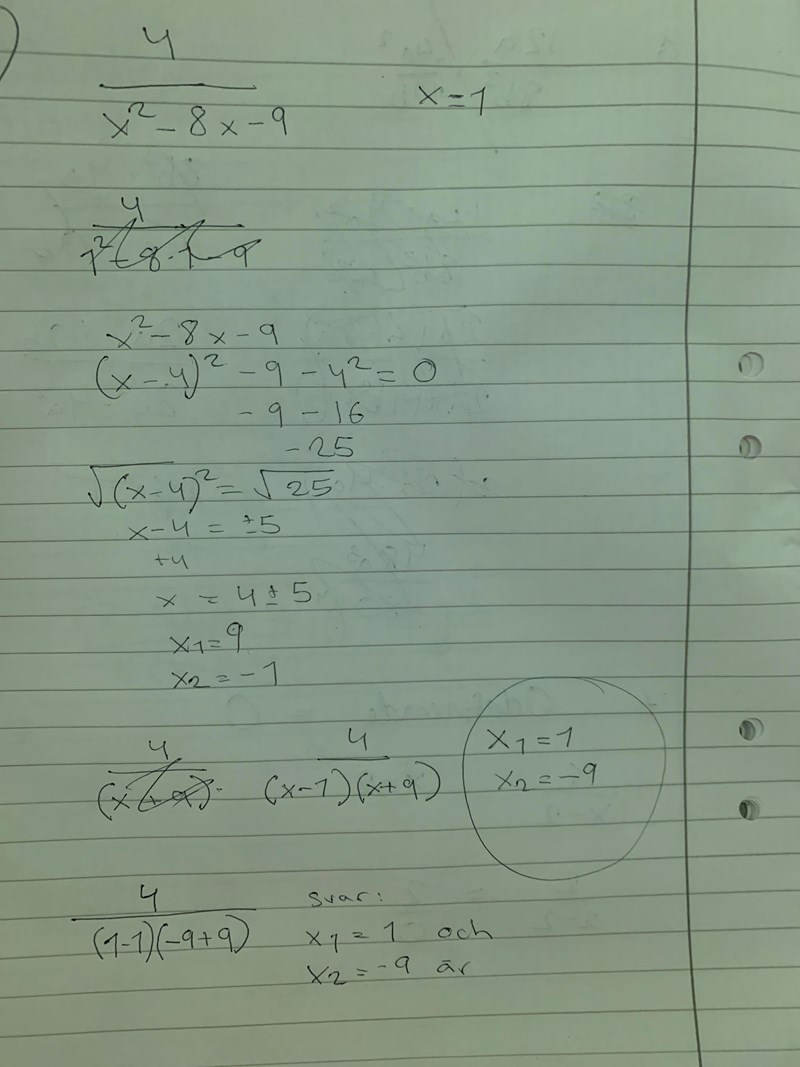 4
x² - 8x - 9
x = 1
4
1² - 8·1 - 9
x² - 8x - 9
(x - 4)² - 9 - 4² = 0
- 9 - 16
- 25
√(x-4)² = √25
x - 4 = ±5
+4
x = 4 ± 5
x1 = 9
x2 = -1
4
(x + 9)·
4
(x-1)(x+9)
x1 = 1
x2 = -9
4
(1-1)(-9+9)
svar:
x1 = 1 och
x2 = -9 är